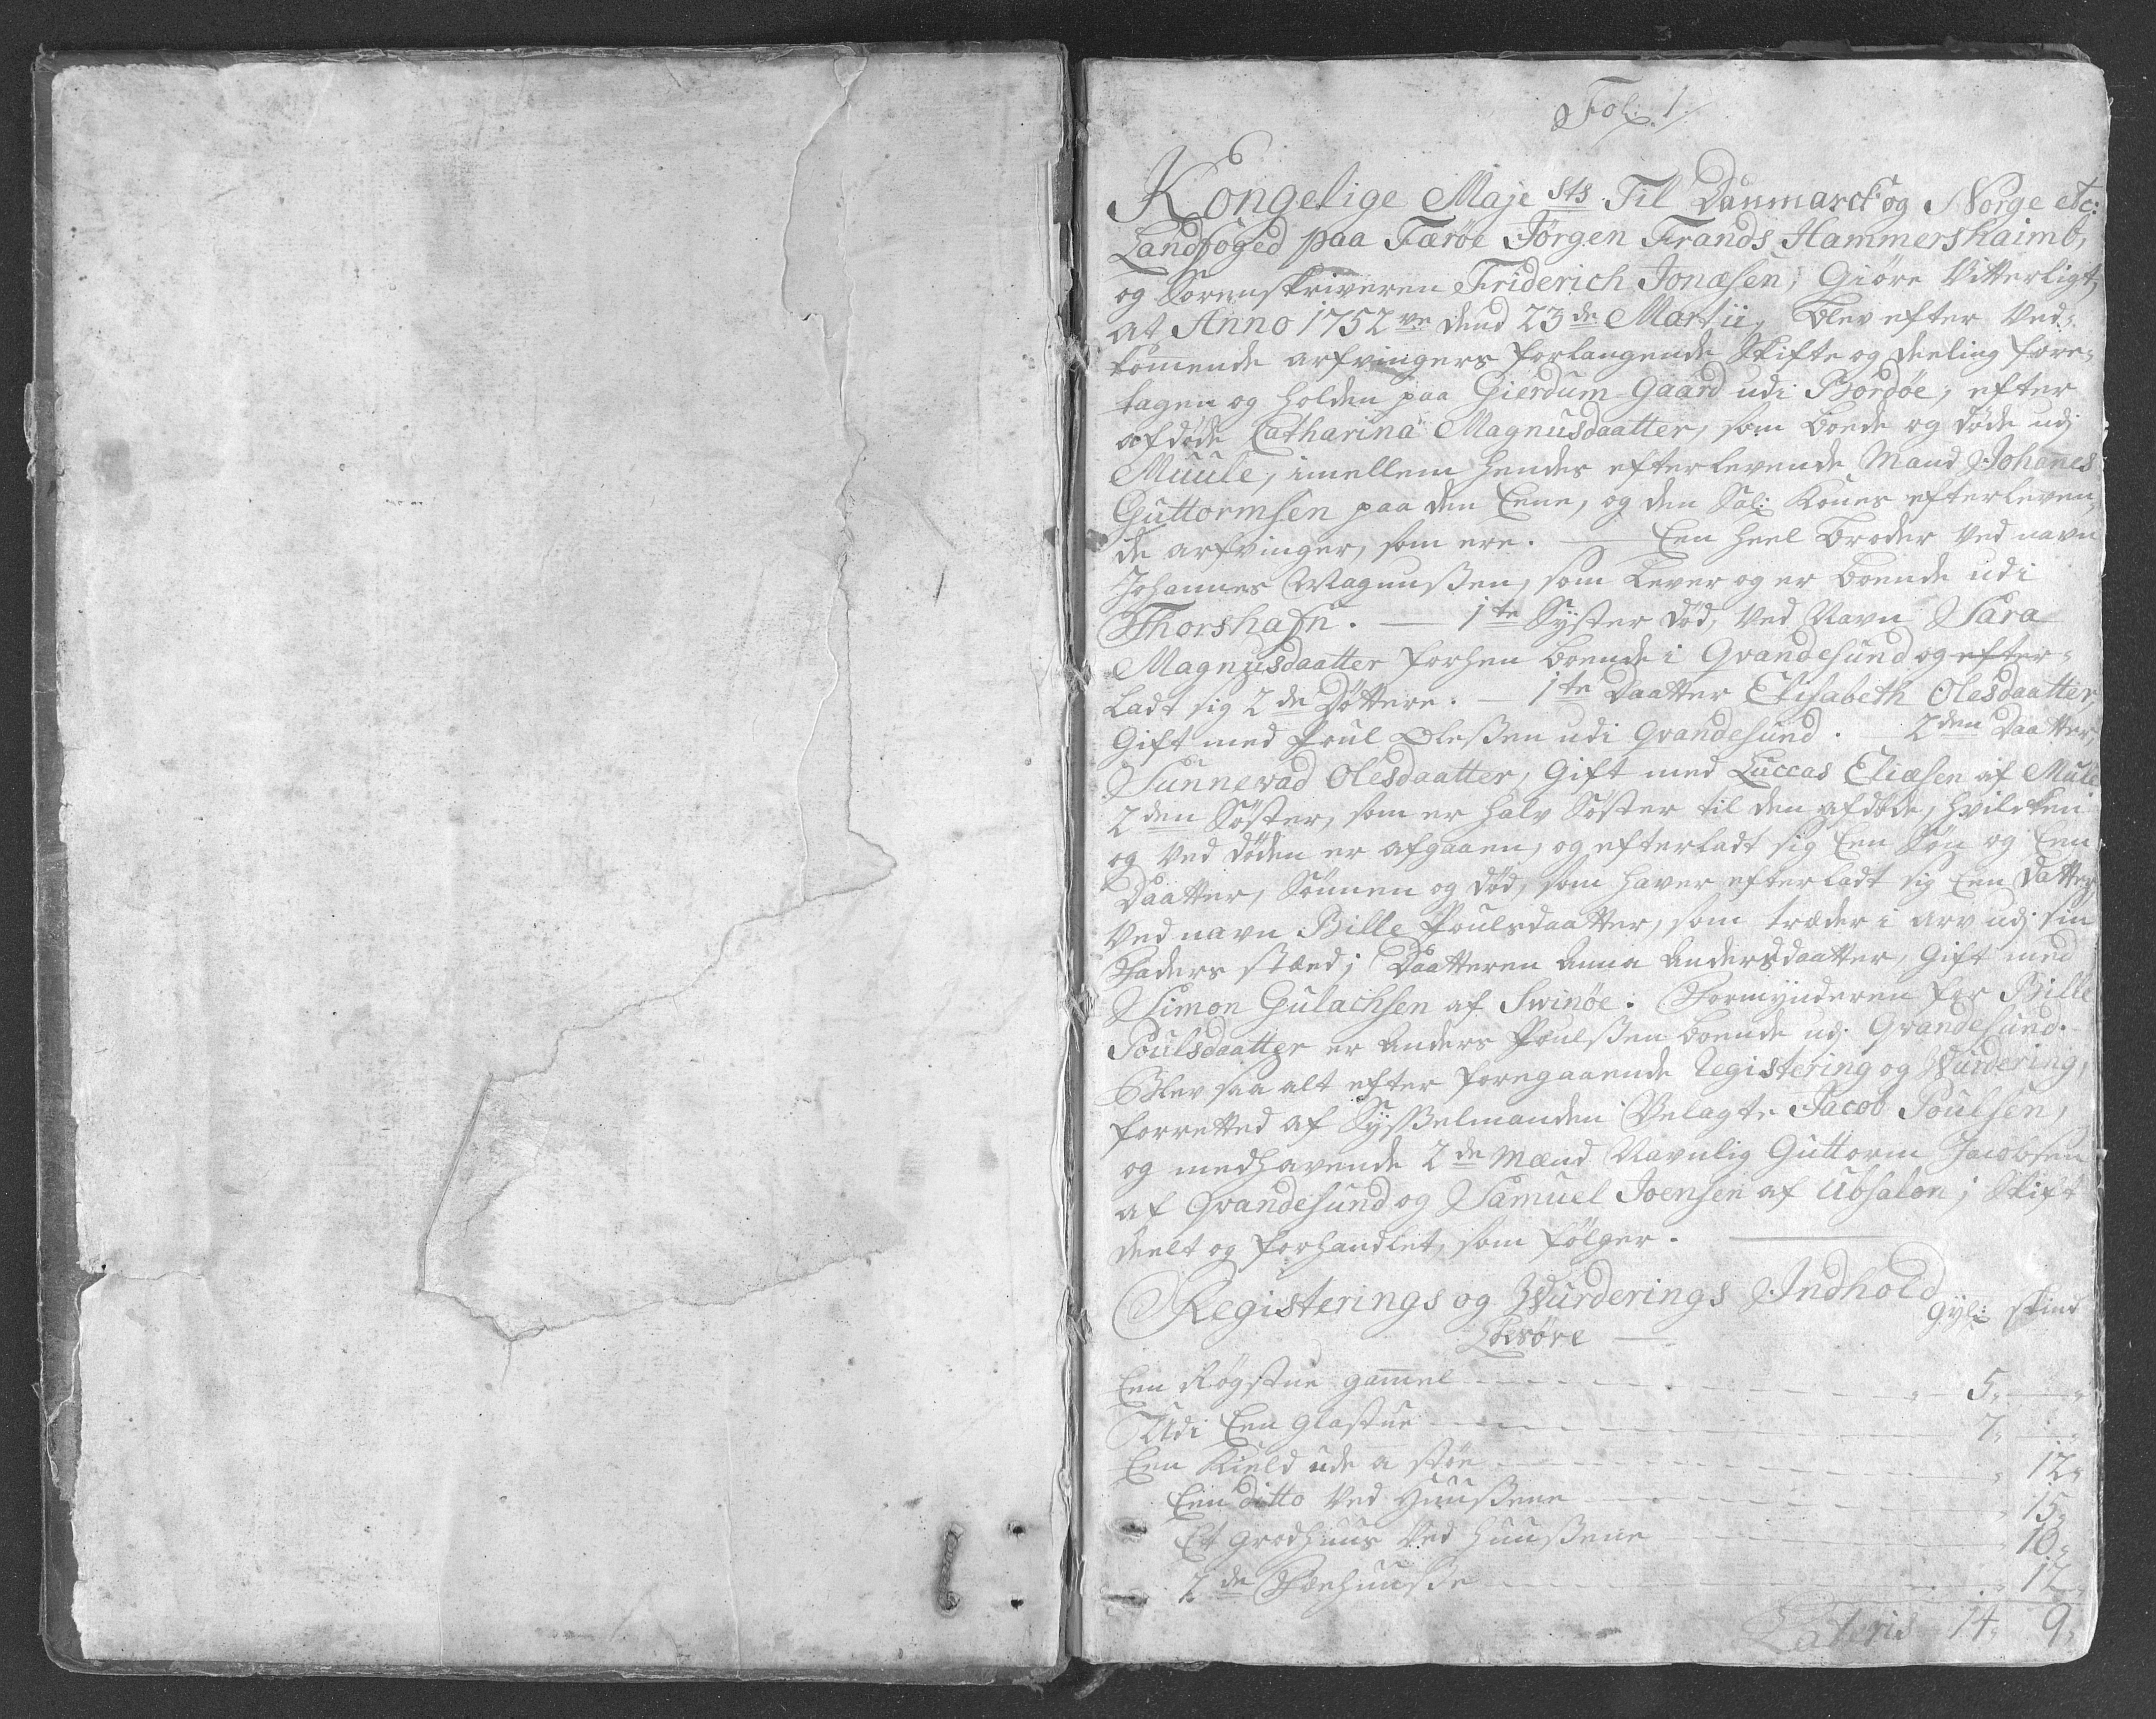 Fol: 1/
Kongelige Maje sts Til Danmarck og Norge etc:
Landfoged paa Færøe Jørgen Frands Hammershaimb,
og Sorenskriveren Friderich Jonæsen, Giøre Vitterligt,
at Anno 1752 ve dend 23 de Martii, blev efter Ved-
kom̅ende arfvingers forlangende Skifte og deeling fore-
tagen og holden paa Gierdum Gaard udi Bordøe, efter
afdøde Catharina Magnusdaatter, som boede og døde udj
Muule, imellem hendes efterlevende Mand Johan̅es
Guttormsen paa den Eene, og den Sal: Kones efterleven-
de arfvinger, som ere. — Een heel broder ved navn
Johannes Magnussen, som lever og er boende udi
Thorshafn. — 1 te Syster død, ved Navn Sara
Magnusdaatter forhen boende i Qvandesund og efter-
ladt sig 2 de Døttere. — 1 te Daatter Elisabeth Olesdaatter,
Gift med Poul Olessen udi Qvandesund. 2 den Daatter,
Sunnevad Olesdaatter, Gift med Luccas Eliæsen af Mule
2 den Søster, som er halv Søster til den afdøde, hvilcken
og ved døden er afgaaen, og efterladt sig Een Søn og Een
Daatter, Sønnen og død, som haver efterladt sig Een Datter,
ved navn Bille Poulsdaatter, som træder i arv udj sin
Faders stæd; Daatteren Anna Andersdaatter, Gift med
Simon Gulachsen af Swinøe. Formynderen for Bille
Poulsdaatter er Anders Poulssen boende udj Qvandesund.
Blev saa alt efter foregaaende Registering og Wurdering,
forretted af Sysselmanden Velagte Jacob Poulsen,
og medhavende 2 de Mænd Navnlig Guttorm Jacobsen
af Qvandesund og Samuel Joensen af Ubsalon; Skift
deelt og forhandlet, som følger.
Registerings og Wurderings Indhold
Gyl: skind
Løsøre
Een Røgstue gam̅el 5,
Udi Een glastue 7,
Een Kield ude a støe 12,
Een ditto ved Huussene 15,
Et grodhuus ved Huussene 10,
2 de Fæehuusse 12,
Lateris 14, 9,